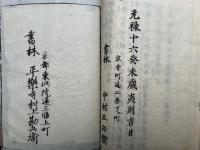 元禄十六癸未歳夷則吉日
京寺町通二条下町
書林 中村五兵衛
京都東洞院通三條上町
書林 平樂寺村上勘兵衛